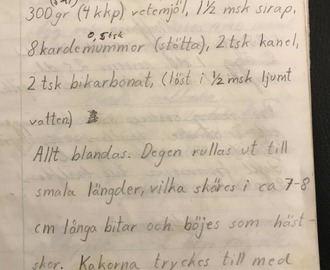 300gr (4 kkp) vetemjöl, 1½ msk sirap,
0,5tsk
8 kardemummor (stötta), 2 tsk kanel,
2 tsk bikarbonat, (löst i ½ msk ljumt
vatten)
Allt blandas. Degen rullas ut till
smala längder, vilka skäres i ca 7-8
cm långa bitar och böjes som häst-
skor. Kakorna tryckes till med